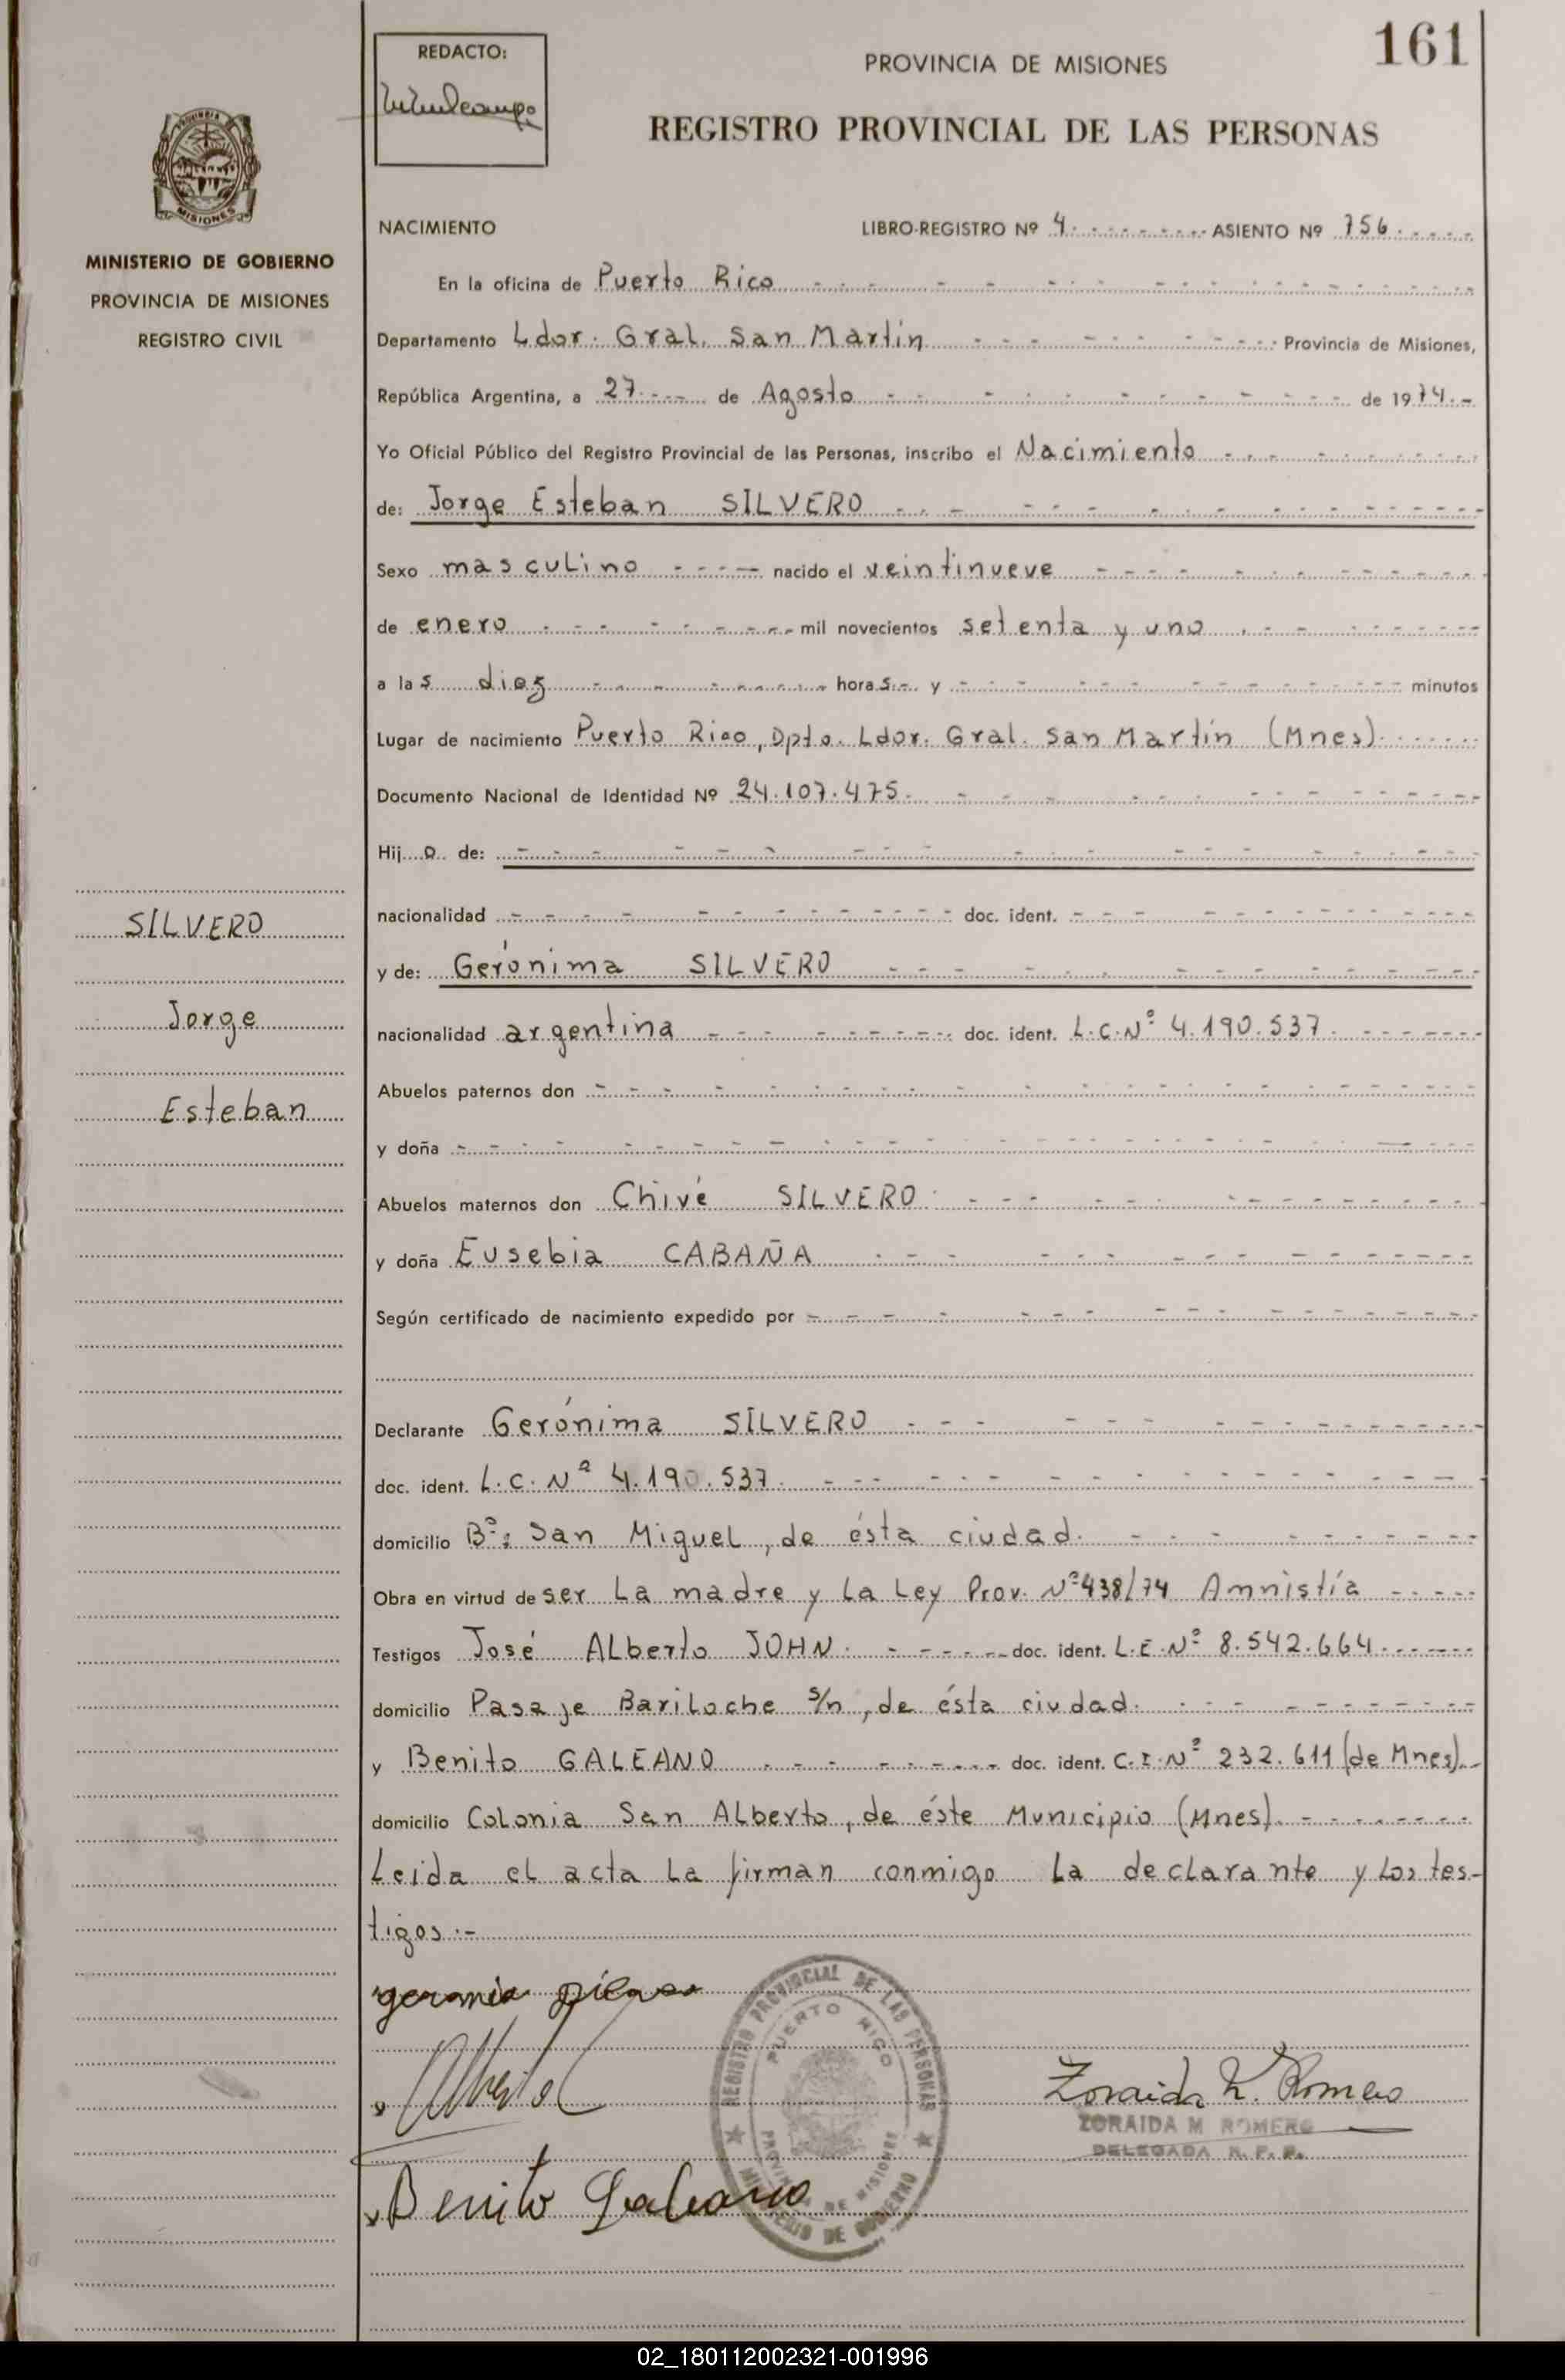 161
REDACTO:
PROVINCIA DE MISIONES
REGISTRO PROVINCIAL DE LAS PERSONAS
MISIONES
MINISTERIO DE GOBIERNO
PROVINCIA DE MISIONES
REGISTRO CIVIL
NACIMIENTO LIBRO-REGISTRO Nº 4 ASIENTO Nº 756
En la oficina de Puerto Rico
Departamento Ldor. Gral. San Martín Provincia de Misiones,
República Argentina, a 27 de Agosto de 1974.-
Yo Oficial Público del Registro Provincial de las Personas, inscribo el Nacimiento
de: Jorge Esteban SILVERO
Sexo masculino nacido el veintinueve
de enero mil novecientos setenta y uno
a las diez horas.- y minutos
Lugar de nacimiento Puerto Rico, Dpto. Ldor. Gral. San Martín (Mnes)
Documento Nacional de Identidad Nº 24.107.475.
Hijo de:
nacionalidad doc. ident.
y de: Gerónima SILVERO
nacionalidad argentina doc. ident. L.C.Nº 4.190.537.
Abuelos paternos don
y doña
Abuelos maternos don Chivé SILVERO
y doña Eusebia CABAÑA
Según certificado de nacimiento expedido por
Declarante Gerónima SILVERO
doc. ident. L.C.Nº 4.190.537.
domicilio Bº: San Miguel, de ésta ciudad.
Obra en virtud de ser la madre y la Ley Prov. Nº 438/74 Amnistía
Testigos José Alberto JOHN. doc. ident. L.E.Nº 8.542.664.
domicilio Pasaje Bariloche s/n, de ésta ciudad.
y Benito GALEANO doc. ident. C.I.Nº 232.611 (de Mnes).
domicilio Colonia San Alberto, de éste Municipio (Mnes).
Leida el acta la firman conmigo la declarante y los tes-
tigos.-
SILVERO
Jorge
Esteban
REGISTRO PROVINCIAL DE LAS PERSONAS
PUERTO RICO
PROVINCIA DE MISIONES
MINISTERIO DE GOBIERNO
Zoraida M. Romero
ZORAIDA M ROMERO
DELEGADA R. P. P.
Benito Galeano
02_180112002321-001996